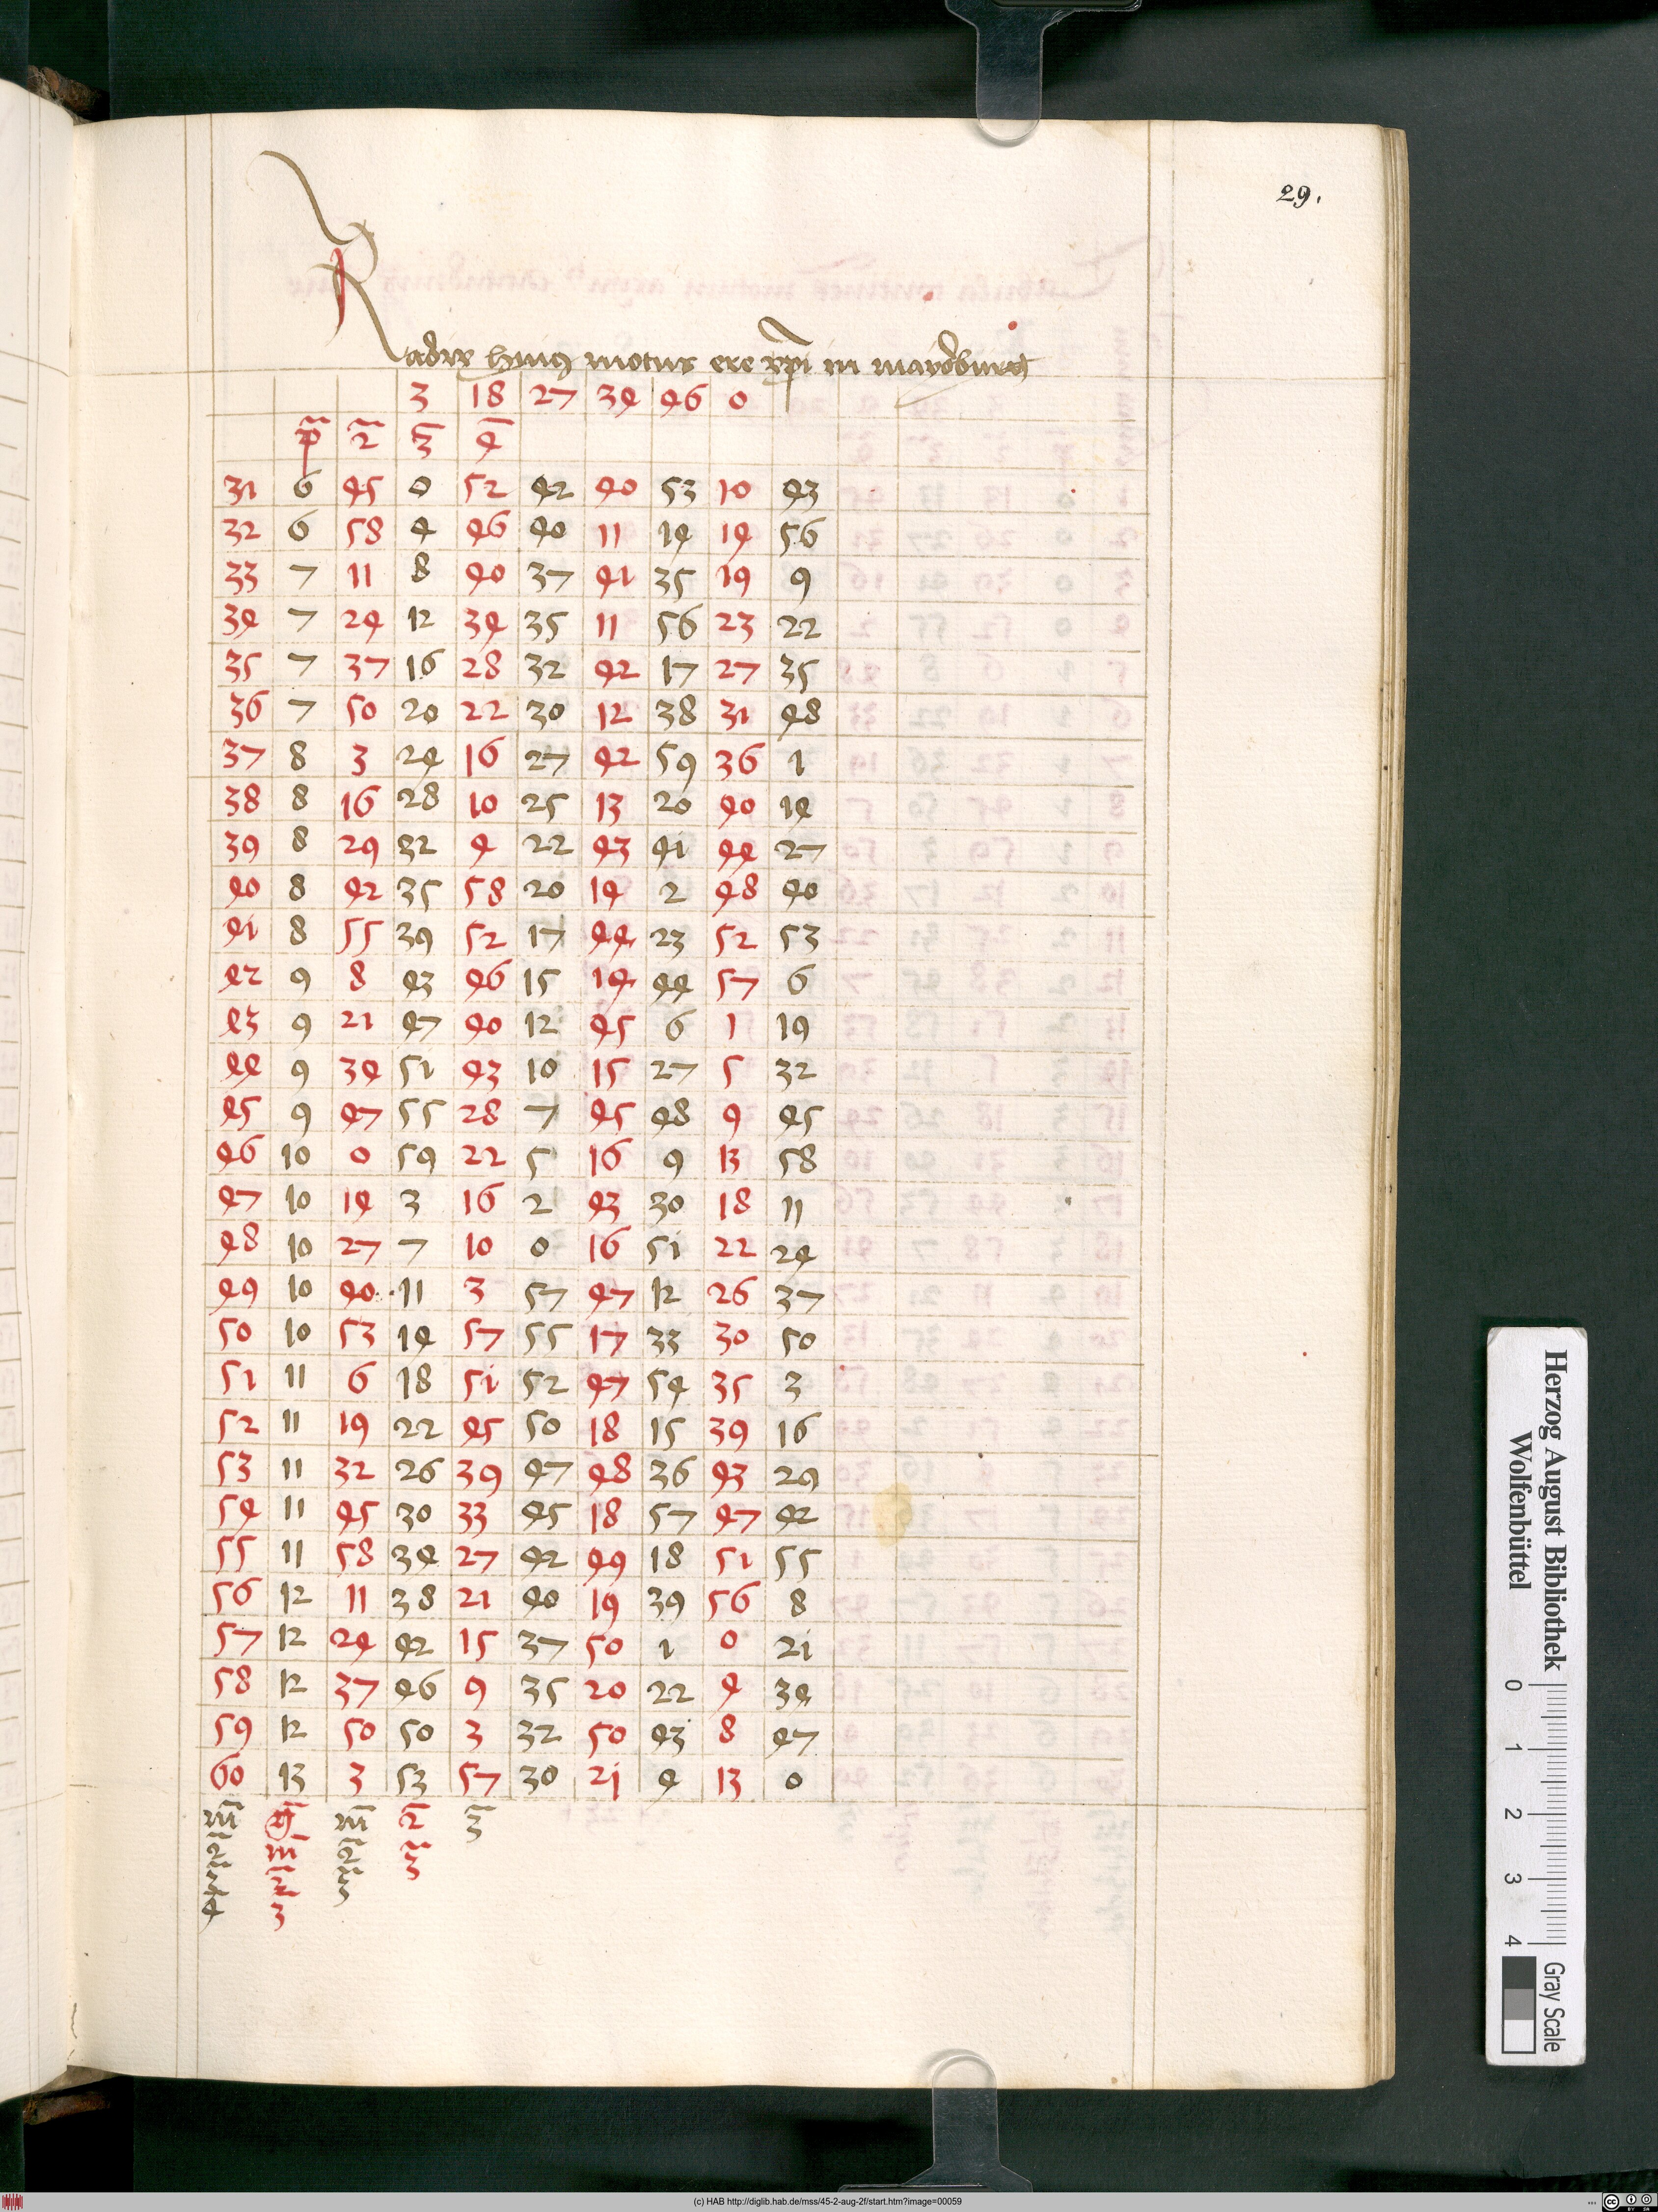 29.
Radix huius motus ere xpi in maydburg
3 18 27 34 46 0
p 2 3 4
31 6 45 0 52 42 40 53 10 43
32 6 58 4 46 40 11 14 14 56
33 7 11 8 40 37 41 35 19 9
34 7 24 12 34 35 11 56 23 22
35 7 37 16 28 32 42 17 27 35
36 7 50 20 22 30 12 38 31 48
37 8 3 24 16 27 42 59 36 1
38 8 16 28 10 25 13 20 40 14
39 8 29 32 4 22 43 41 44 27
40 8 42 35 58 20 14 2 48 40
41 8 55 39 52 17 44 23 52 53
42 9 8 43 46 15 14 44 57 6
43 9 21 47 40 12 45 6 1 19
44 9 34 51 43 10 15 27 5 32
45 9 47 55 28 7 45 48 9 45
46 10 0 59 22 5 16 9 13 58
47 10 14 3 16 2 43 30 18 11
48 10 27 7 10 0 16 51 22 24
49 10 40 11 3 57 47 12 26 37
50 10 53 14 57 55 17 33 30 50
51 11 6 18 51 52 47 54 35 3
52 11 19 22 45 50 18 15 39 16
53 11 32 26 39 47 48 36 43 29
54 11 45 30 33 45 18 57 47 42
55 11 58 34 27 42 49 18 51 55
56 12 11 38 21 40 19 39 56 8
57 12 24 42 15 37 50 1 0 21
58 12 37 46 9 35 20 22 4 34
59 12 50 50 3 32 50 43 8 47
60 13 3 53 57 30 21 4 13 0
m g m 2 3
2 m 2 3
3 2 3
4 3
Herzog August Bibliothek
Wolfenbüttel
0 1 2 3 4
Gray Scale
(c) HAB http://diglib.hab.de/mss/45-2-aug-2f/start.htm?image=00059